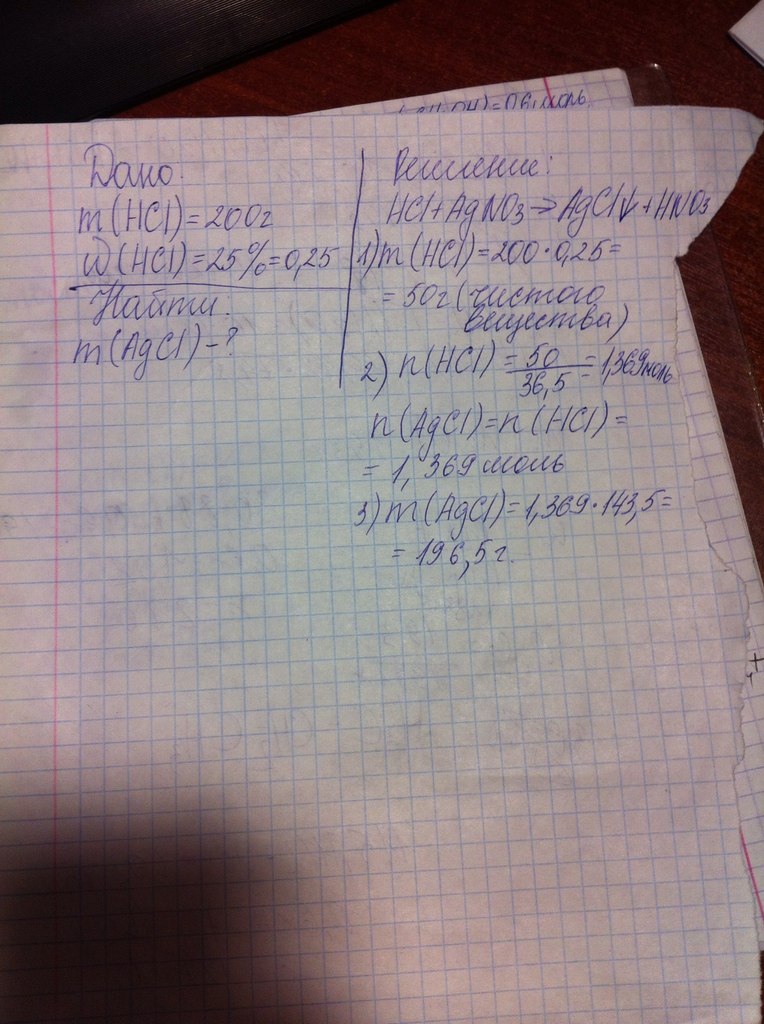 CH₃OH) = 0,6 моль
Дано:
m(HCl) = 200г
W(HCl) = 25% = 0,25
Найти:
m(AgCl) - ?
Решение:
HCl + AgNO₃ → AgCl↓ + HNO₃
1) m(HCl) = 200 · 0,25 =
= 50г (чистого
вещества)
2) n(HCl) = 50/36,5 = 1,369 моль
n(AgCl) = n(HCl) =
= 1,369 моль
3) m(AgCl) = 1,369 · 143,5 =
= 196,5 г.